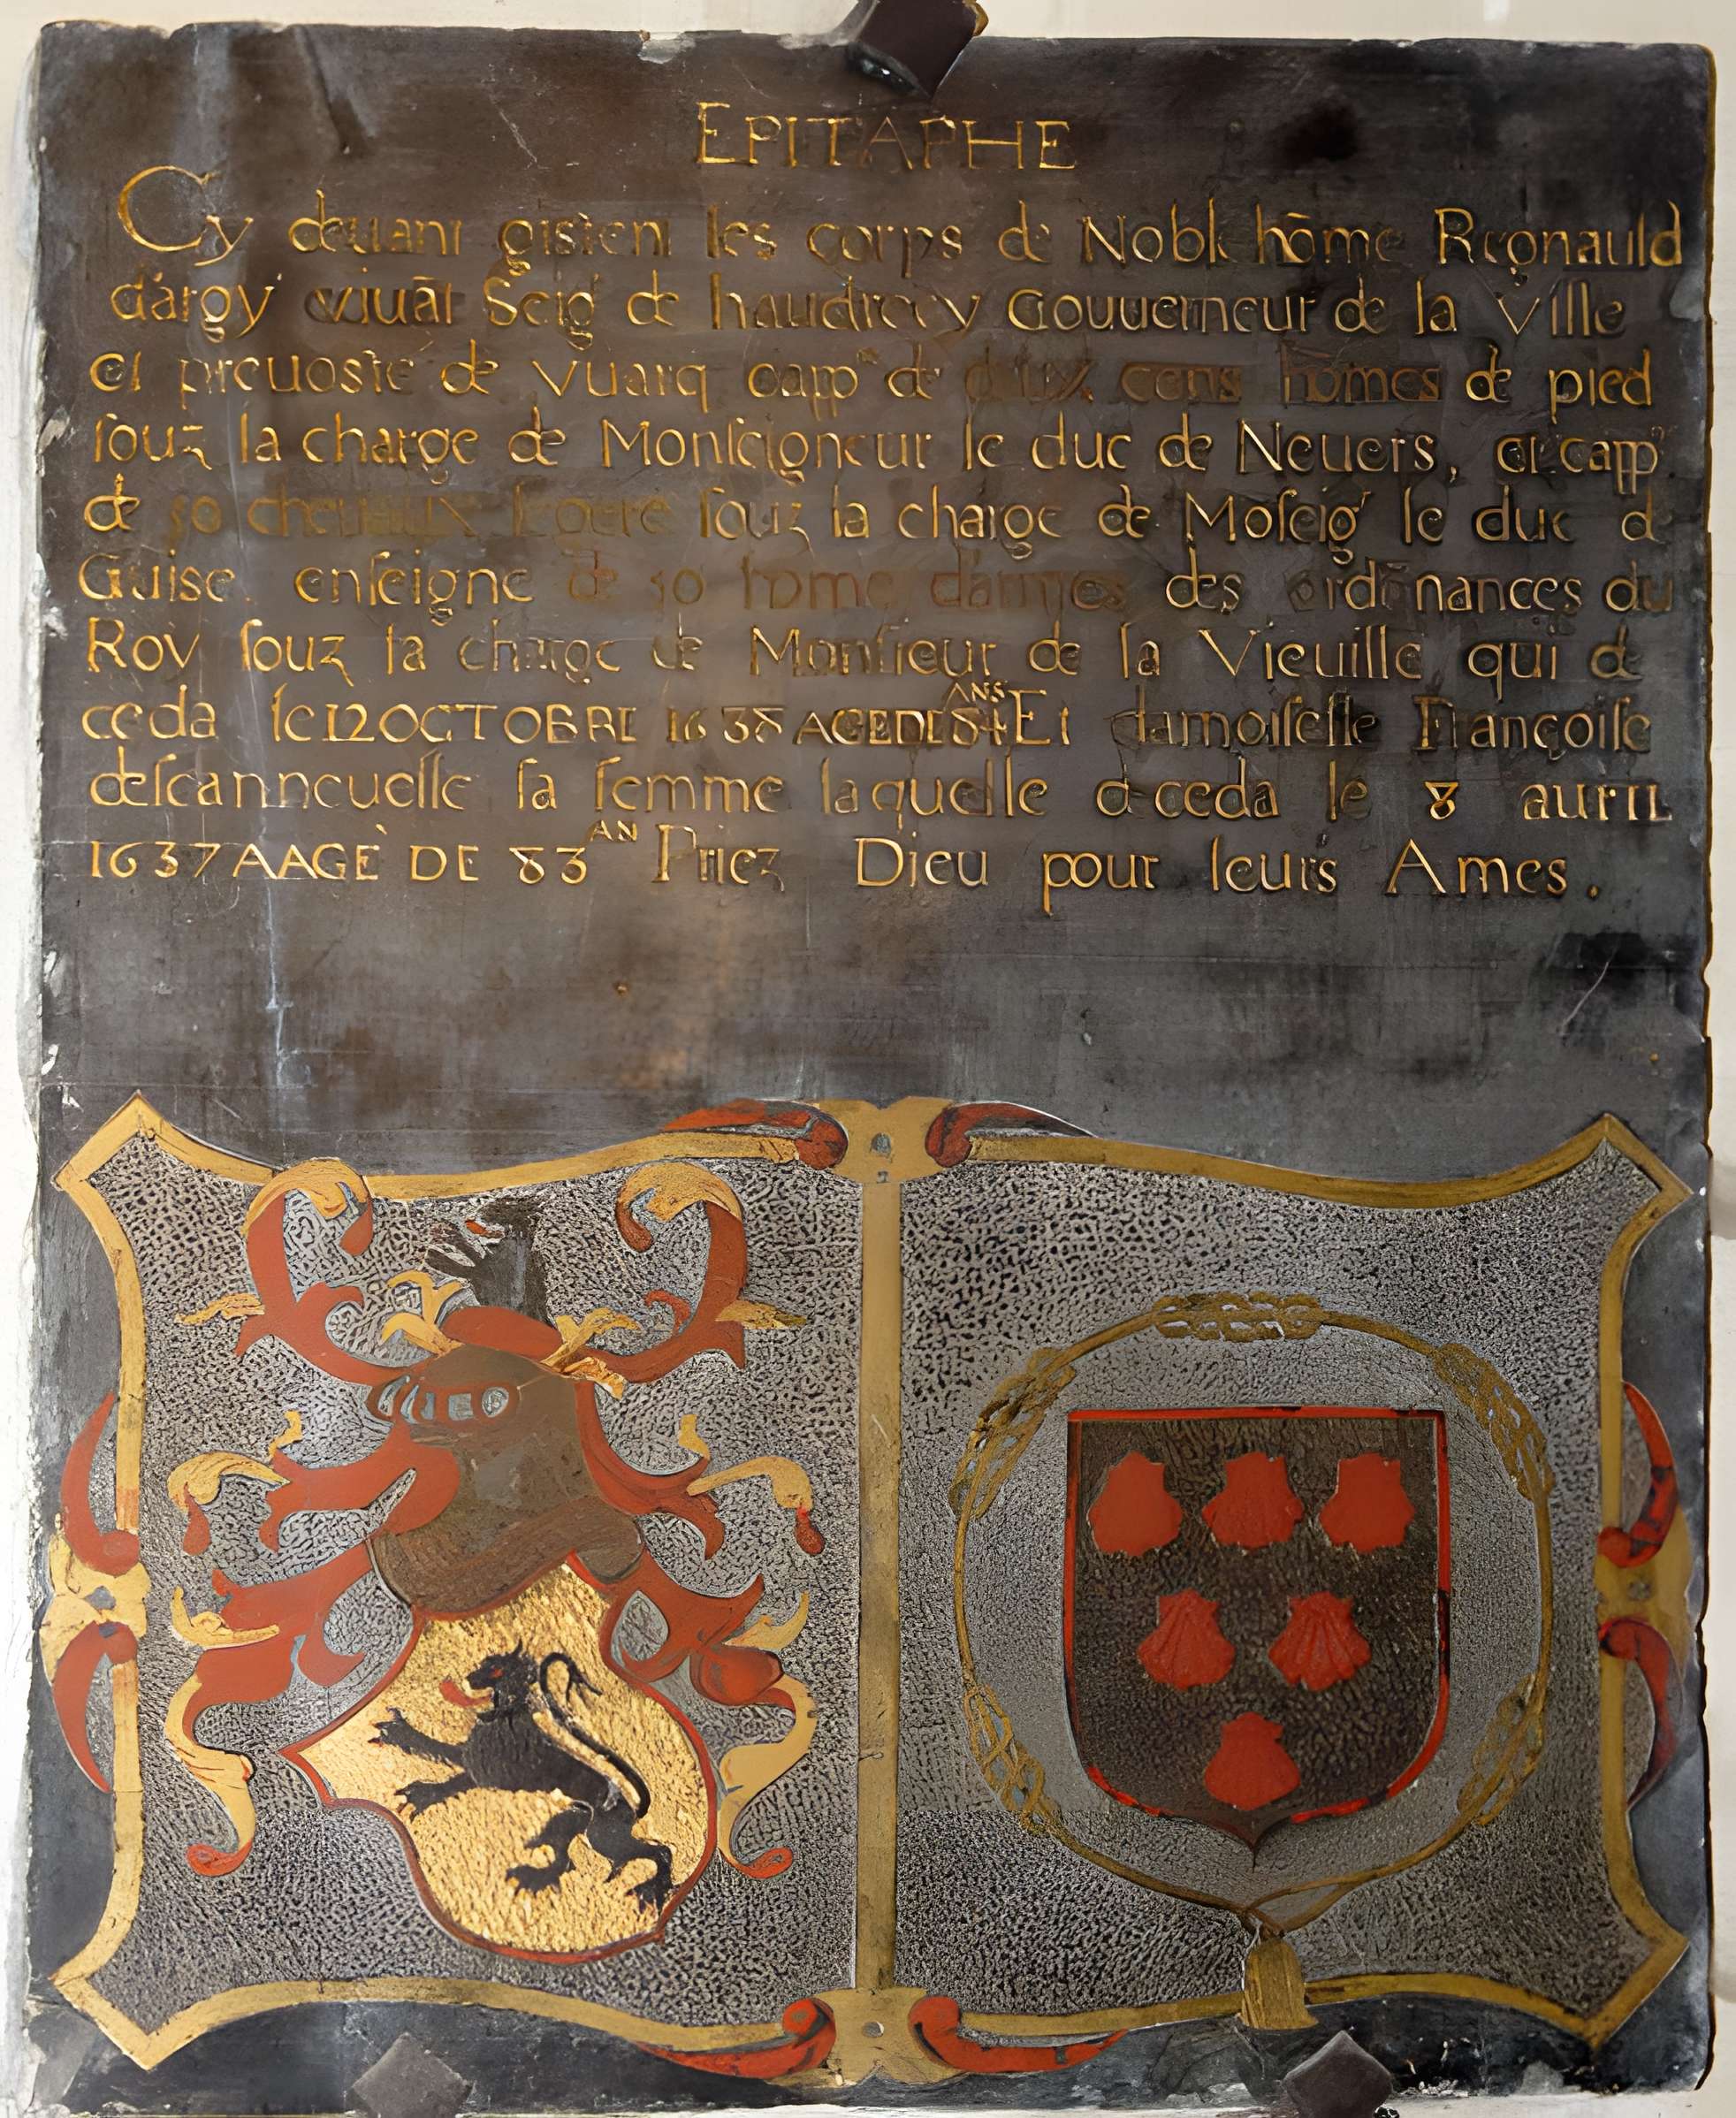 EPITAPHE
Cy deuant gisient les corps de Noble hōme Regnauld
dargy viuāt Seigʳ de haudrecy Gouuerneur de la Ville
et preuosté de Vuarq capp^ne de deux cens hōmes de pied
ſouz la charge de Monſeigneur le duc de Neuers, et capp^ne
de 50 cheuaux legere ſouz la charge de Moſeigʳ le duc d
Guise enſeigne de 50 home darmes des ordōnances du
Roy ſouz la charge de Monſieur de la Vieuille qui de
ceda le 12 OCTOBRE 1638 AGE DE 84 ANS Et damoiſelle Françoiſe
deſcanneuelle ſa femme laquelle deceda le 8 auril
1637 AAGÈ DE 83 AN Priez Dieu pour leurs Ames.